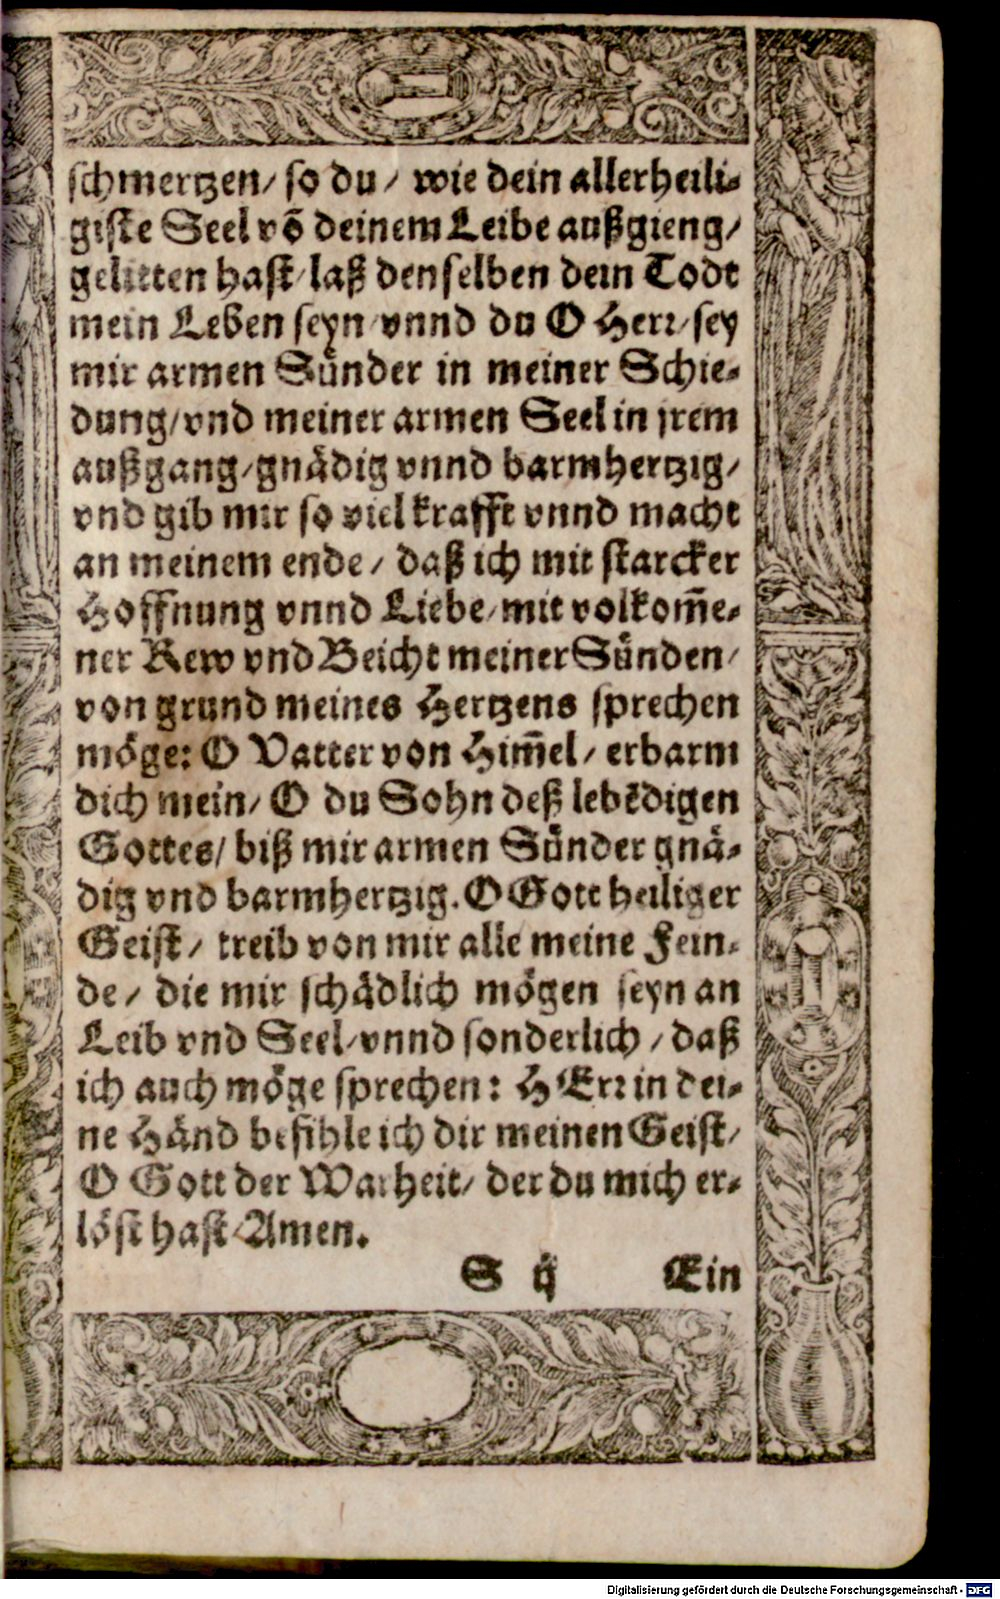 schmertzen/ so du/ wie dein allerheili-
giste Seel võ deinem Leibe außgieng/
gelitten hast/ laß denselben dein Todt
mein Leben seyn/ vnnd du O Herr/ sey
mir armen Sünder in meiner Schie-
dung/ vnd meiner armen Seel in jrem
außgang/ gnädig vnnd barmhertzig/
vnd gib mir so viel krafft vnnd macht
an meinem ende/ daß ich mit starcker
Hoffnung vnnd Liebe/ mit volkom̃e-
ner Rew vnd Beicht meiner Sünden/
von grund meines Hertzens sprechen
möge: O Vatter von Him̃el/ erbarm
dich mein/ O du Sohn deß lebẽdigen
Gottes/ biß mir armen Sünder gnä-
dig vnd barmhertzig. O Gott heiliger
Geist/ treib von mir alle meine Fein-
de/ die mir schädlich mögen seyn an
Leib vnd Seel/ vnnd sonderlich/ daß
ich auch möge sprechen: HErr in dei-
ne Händ befihle ich dir meinen Geist/
O Gott der Warheit/ der du mich er-
löst hast/ Amen.
S ij Ein
Digitalisierung gefördert durch die Deutsche Forschungsgemeinschaft - DFG